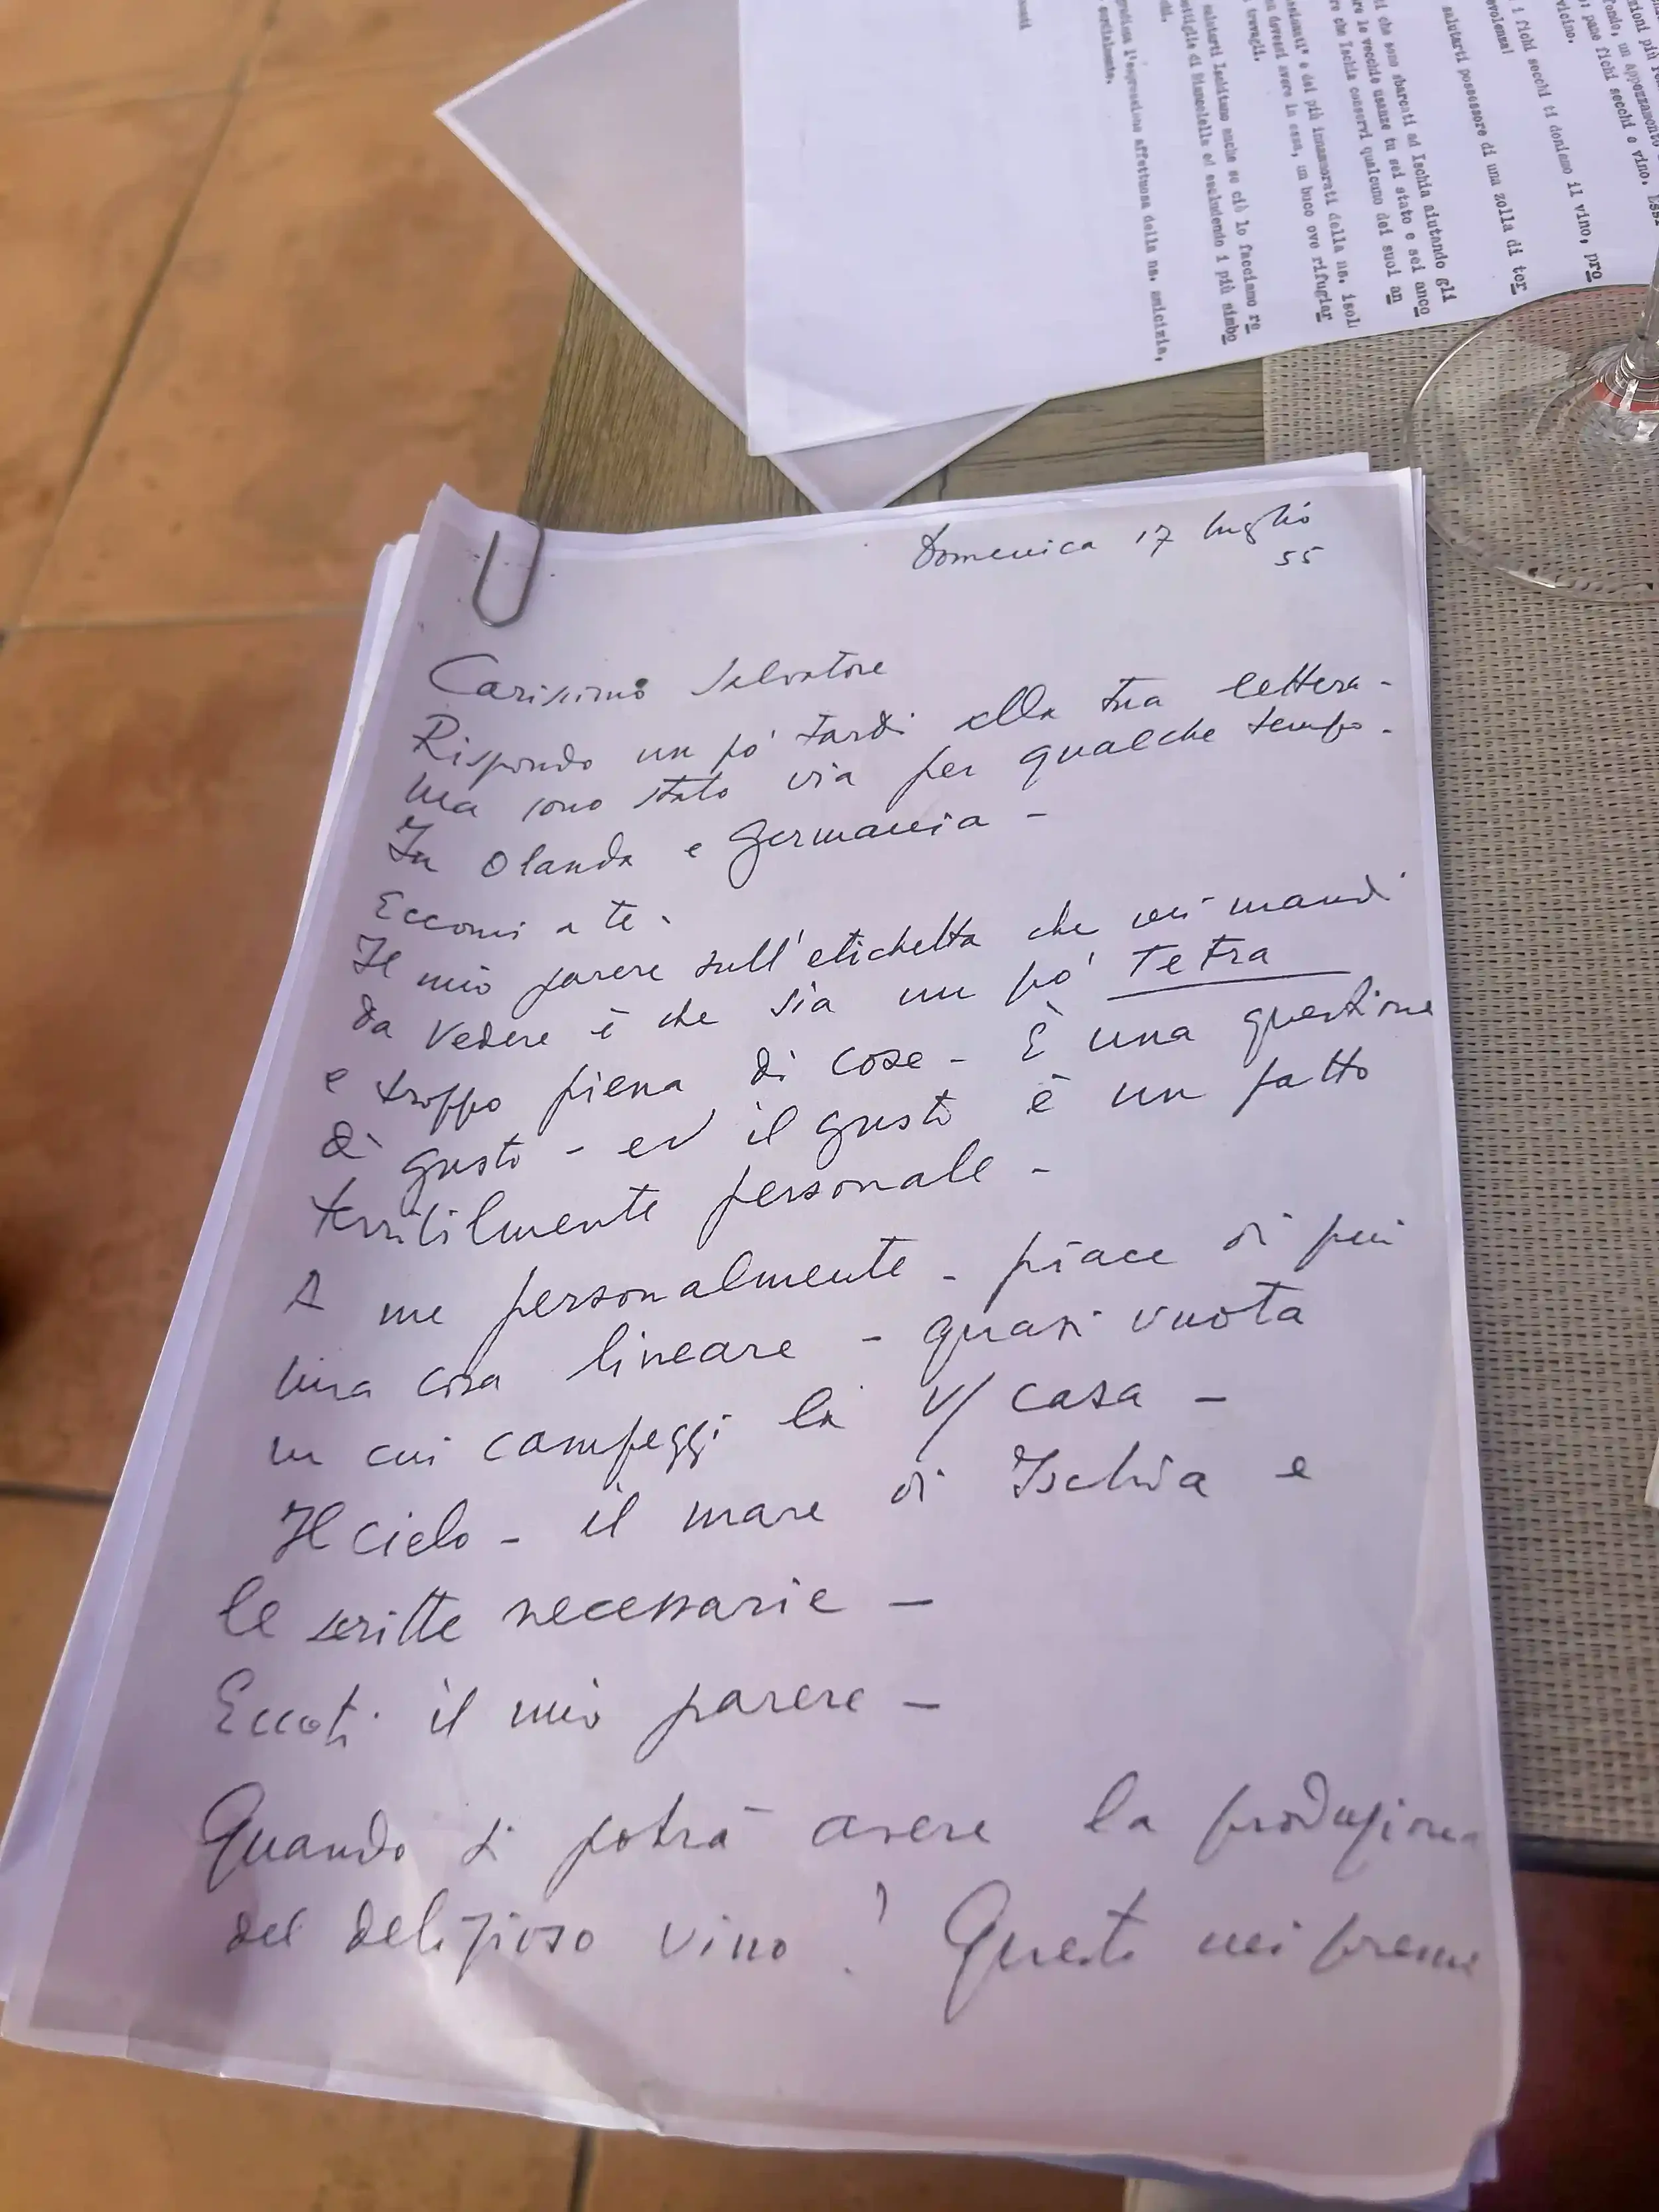 Domenica 17 luglio
55
Carissimo Salvatore
Rispondo un pò tardi alla tua lettera -
Ma sono stato via per qualche tempo.
In Olanda e Germania -
Eccomi a te.
Il mio parere sull'etichetta che mi mandi
da vedere è che sia un pò Tetra
e troppo piena di cose - È una questione
di gusto - ed il gusto è un fatto
terribilmente personale -
A me personalmente - piace di più
una cosa lineare - quasi vuota
in cui campeggi la V/ casa -
Il cielo - il mare di Ischia e
le scritte necessarie -
Eccoti il mio parere -
Quando si potrà avere la produzione
del delizioso vino ? Questo mi preme
salutarti possessore di una zolla di ter
i fichi secchi ti doniamo il vino, pro
ti che sono sbarcati ad Ischia aiutando gli
re le vecchie usanze tu sei stato e sei anco
re che Ischia conservi qualcuno dei suoi an
e dei più innamorati della ns. isol
devessi avere in essa, un buco ove rifugiar
travagli.
salutarti Ischitano anche se ciò lo facciamo ra
ottiglie di Biancolella ed escludendo i più simbo
l'espressione affettuosa della ns. amicizia,
cordialmente.